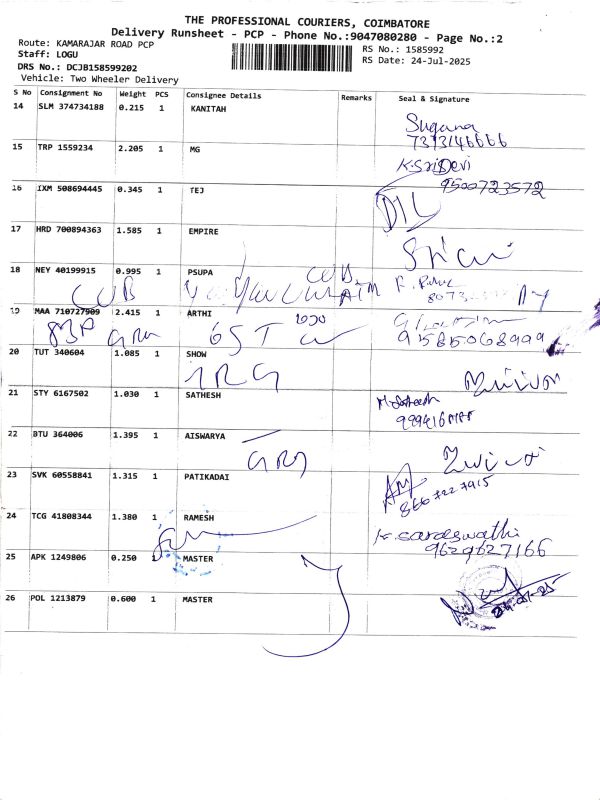 THE PROFESSIONAL COURIERS, COIMBATORE
Delivery Runsheet - PCP - Phone No.:9047080280 - Page No.:2
Route: KAMARAJAR ROAD PCP
Staff: LOGU
DRS No.: DCJB158599202
Vehicle: Two Wheeler Delivery
RS No.: 1585992
RS Date: 24-Jul-2025
S No Consignment No Weight PCS Consignee Details Remarks Seal & Signature
14 SLM 374734188 0.215 1 KANITAH
Suguna
7373146666
15 TRP 1559234 2.205 1 MG
K.SriDevi
9500723572
16 IXM 508694445 0.345 1 TEJ
17 HRD 700894363 1.585 1 EMPIRE
18 NEY 40199915 0.995 1 PSUPA
CUB
CUB
19 MAA 710727909 2.415 1 ARTHI
65
9585068999
20 TUT 340604 1.085 1 SHOW
21 STY 6167502 1.030 1 SATHESH
22 BTU 364006 1.395 1 AISWARYA
23 SVK 60558841 1.315 1 PATIKADAI
8667227915
24 TCG 41808344 1.380 1 RAMESH
K.saraswathi
9629627166
25 APK 1249806 0.250 1 MASTER
26 POL 1213879 0.600 1 MASTER